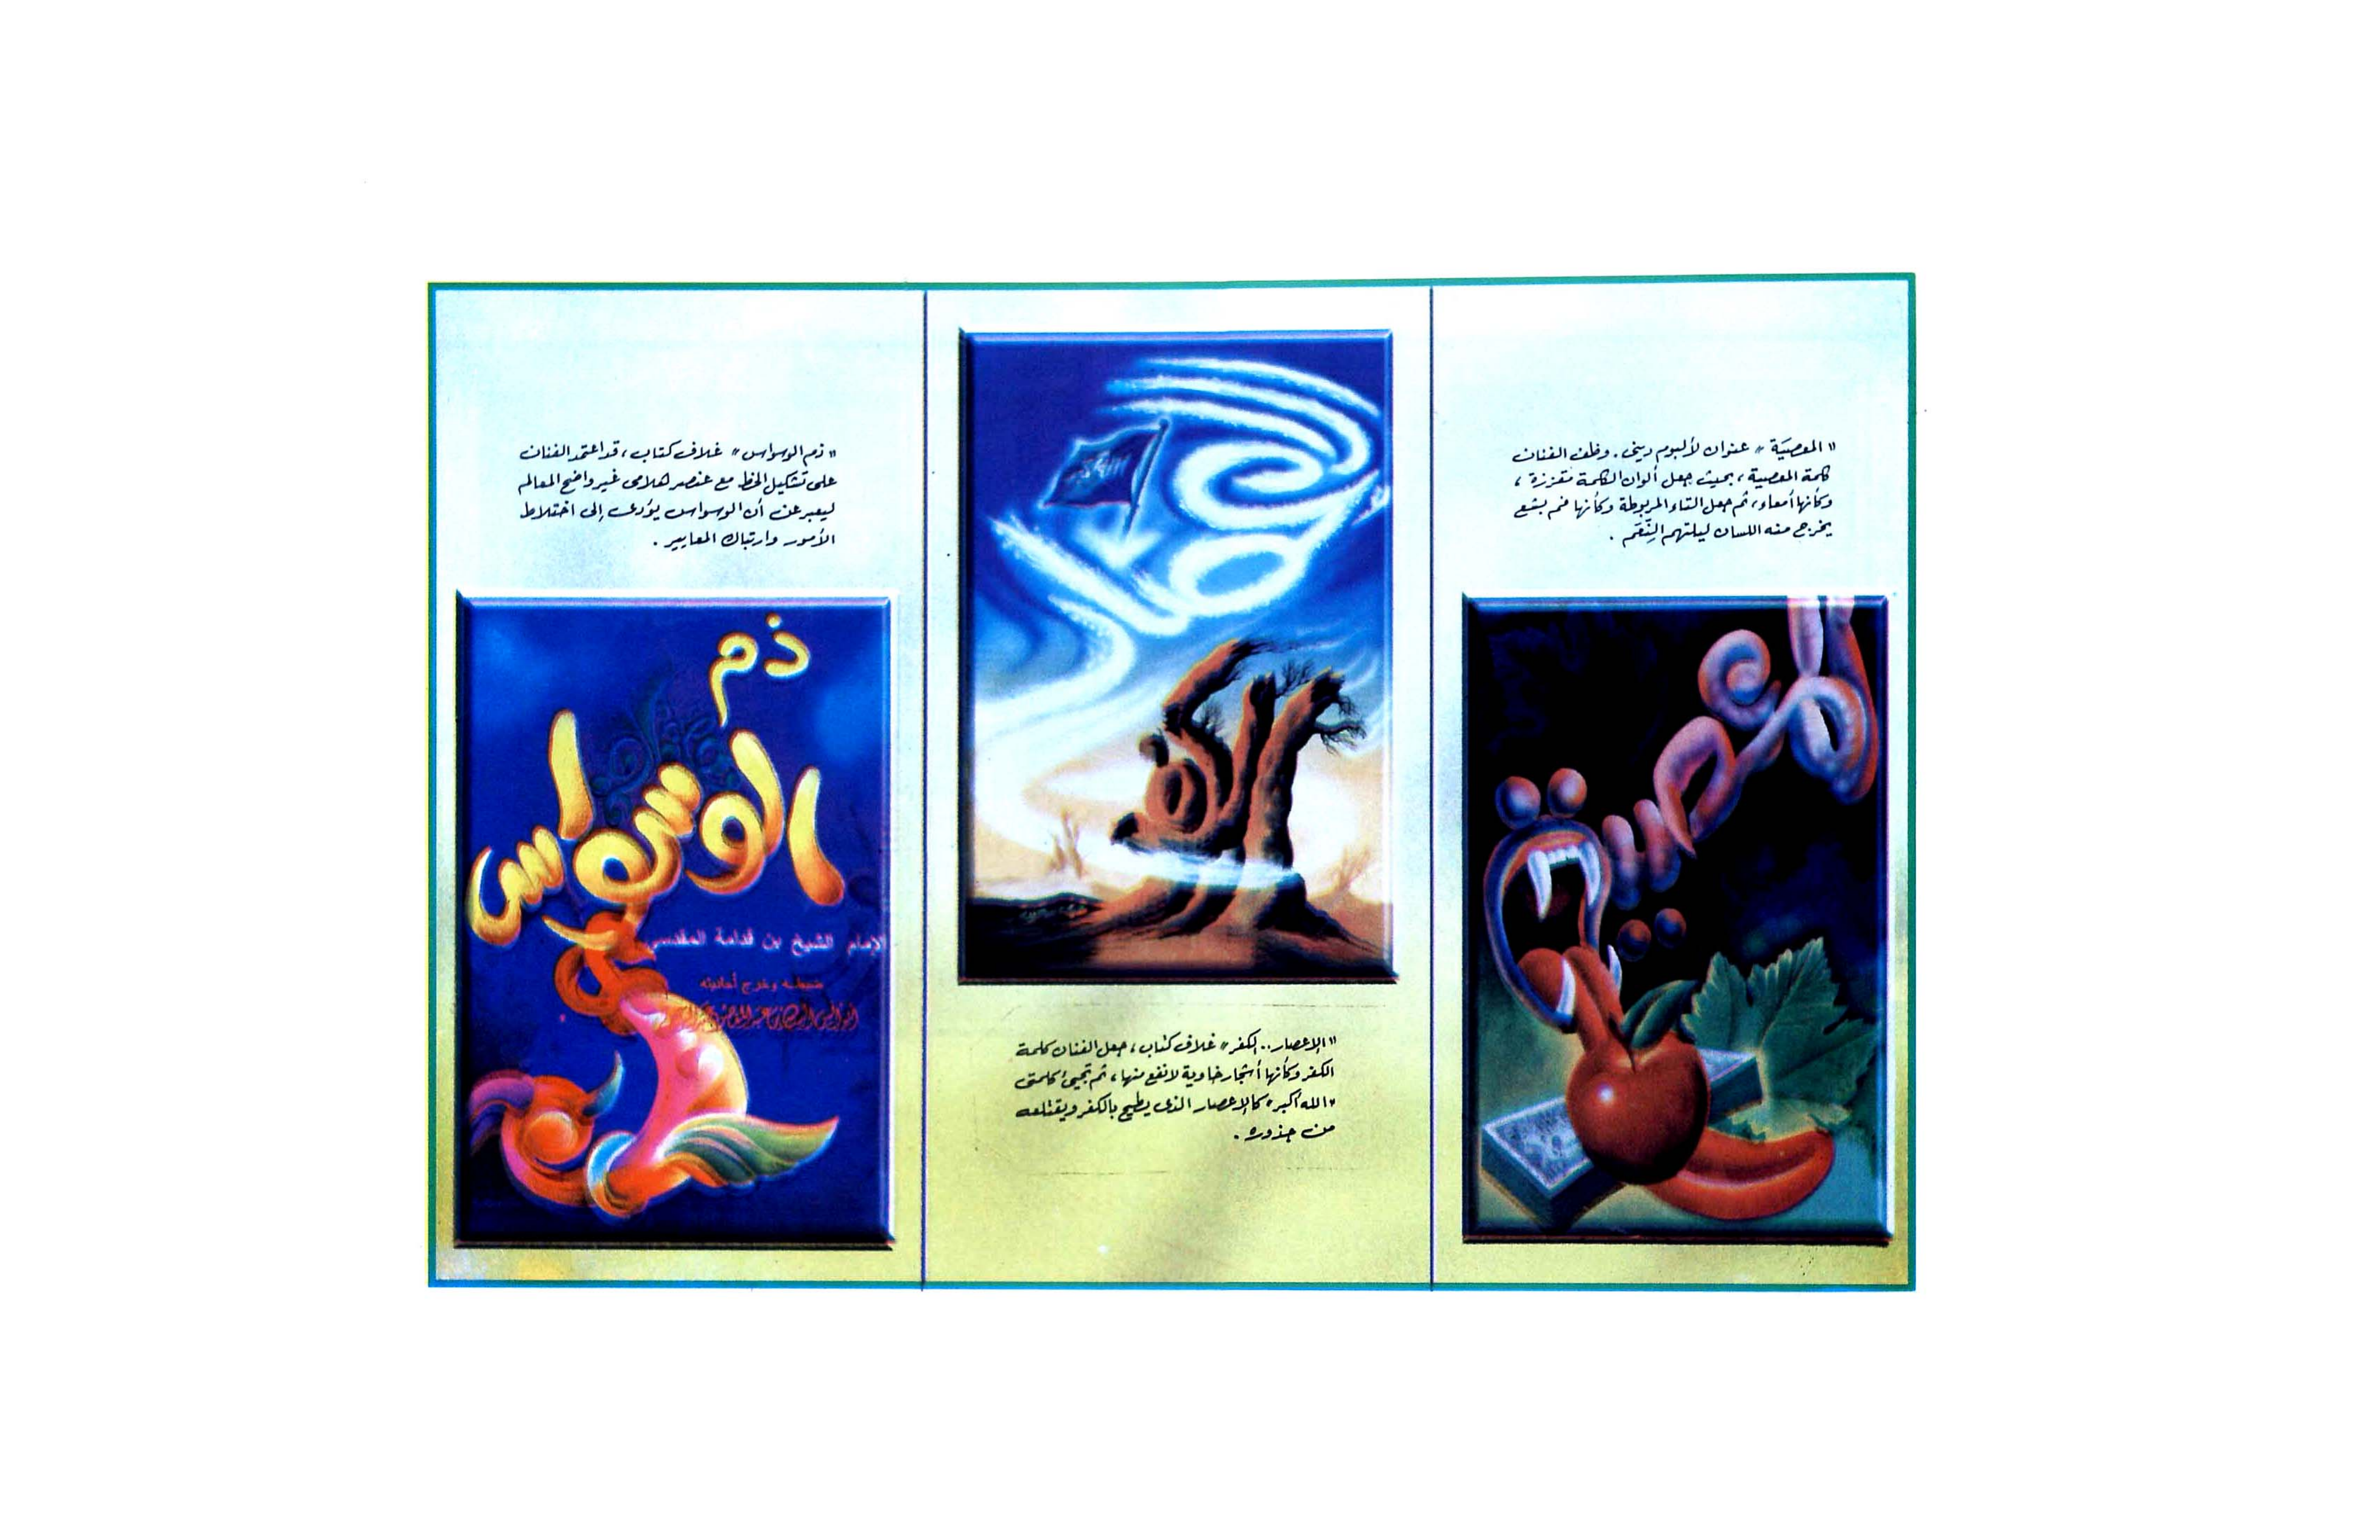 "المعصيَة" عنوان لألبوم ديني. وظف الفنان
كلمة المعصية، بحيث جعل ألوان الكلمة مقززة،
وكأنها أمعاء، ثم جعل التاء المربوطة وكأنها فم بشع
يخرج منه اللسان ليلتهم النِّقم .
المعصية
الإعصار
الكفر
"الإعصار.. الكفر" غلاف كتاب، جعل الفنان كلمة
الكفر وكأنها أشجار خاوية لا نفع منها، ثم تجيئ كلمتى
"الله أكبر" كالإعصار الذى يطيح بالكفر ويقتلعه
من جذوره .
"ذم الوسواس" غلاف كتاب، قد اعتمد الفنان
على تشكيل الخط مع عنصر هلامى غير واضح المعالم
ليعبر عن أن الوسواس يؤدى إلى اختلاط
الأمور وارتباك المعايير .
ذم
الوسواس
الإمام الشيخ بن قدامة المقدسي
ضبطه وخرج أحاديثه